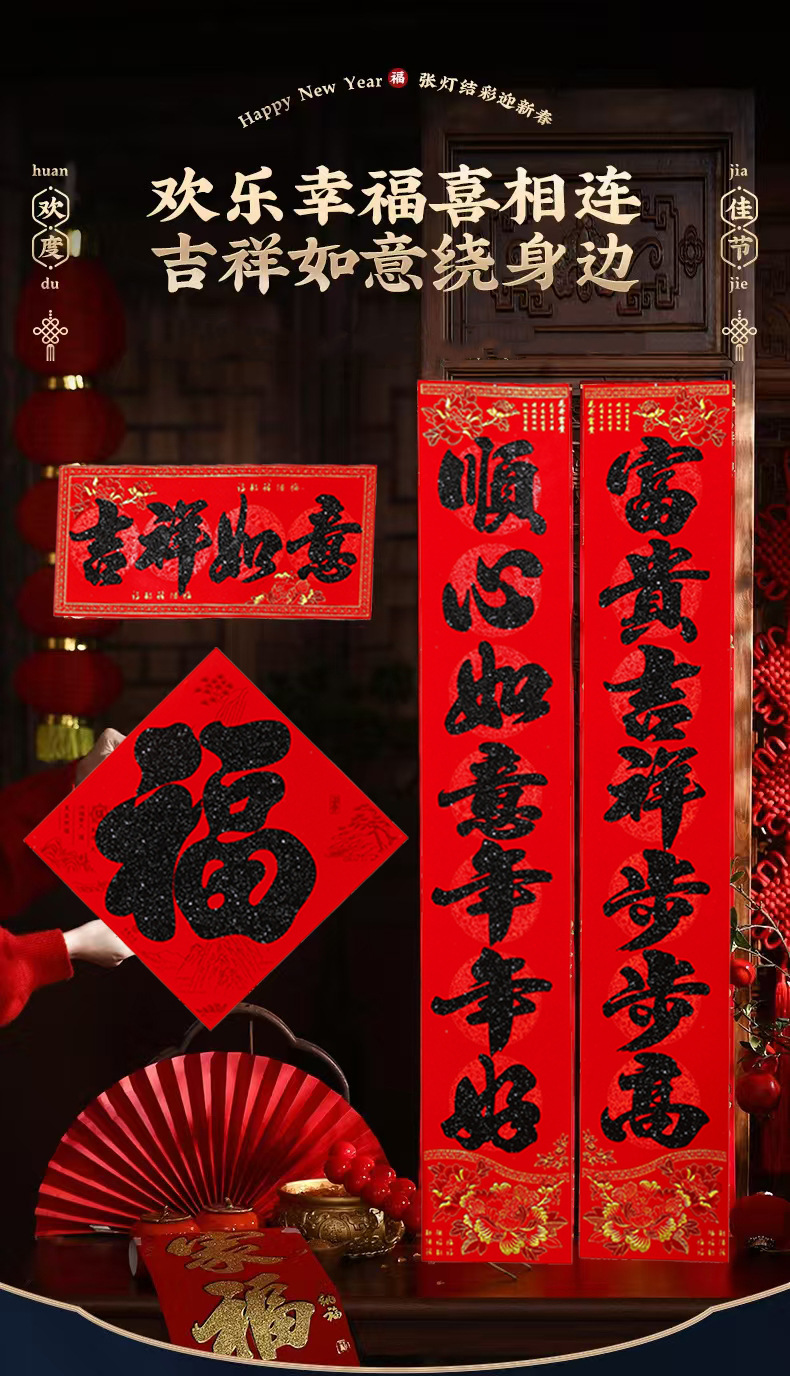 Happy New Year 福 张灯结彩迎新春
huan
欢度
du
jia
佳节
jie
欢乐幸福喜相连
吉祥如意绕身边
吉祥如意
福
富貴吉祥步步高
順心如意年年好
家福